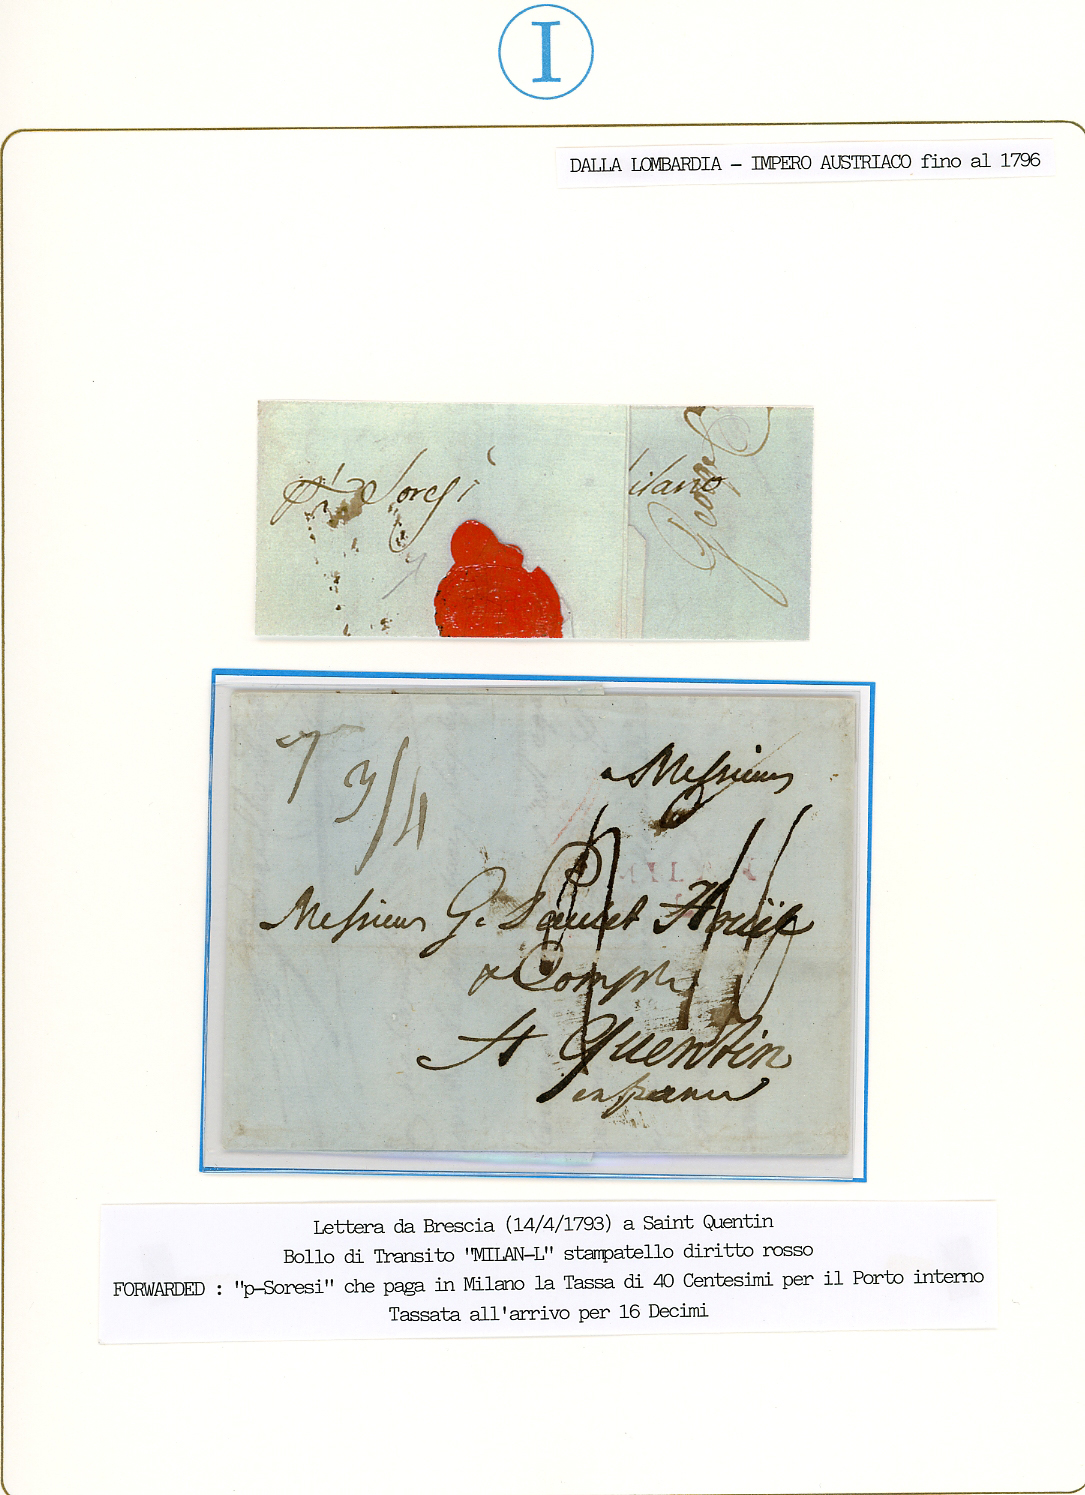 I
DALLA LOMBARDIA - IMPERO AUSTRIACO fino al 1796
p Soresi
ilano
a Messieurs
3/4
Messieurs G. Houël
& Comp
St Quentin
en france
Lettera da Brescia (14/4/1793) a Saint Quentin
Bollo di Transito "MILAN-L" stampatello diritto rosso
FORWARDED : "p-Soresi" che paga in Milano la Tassa di 40 Centesimi per il Porto interno
Tassata all'arrivo per 16 Decimi